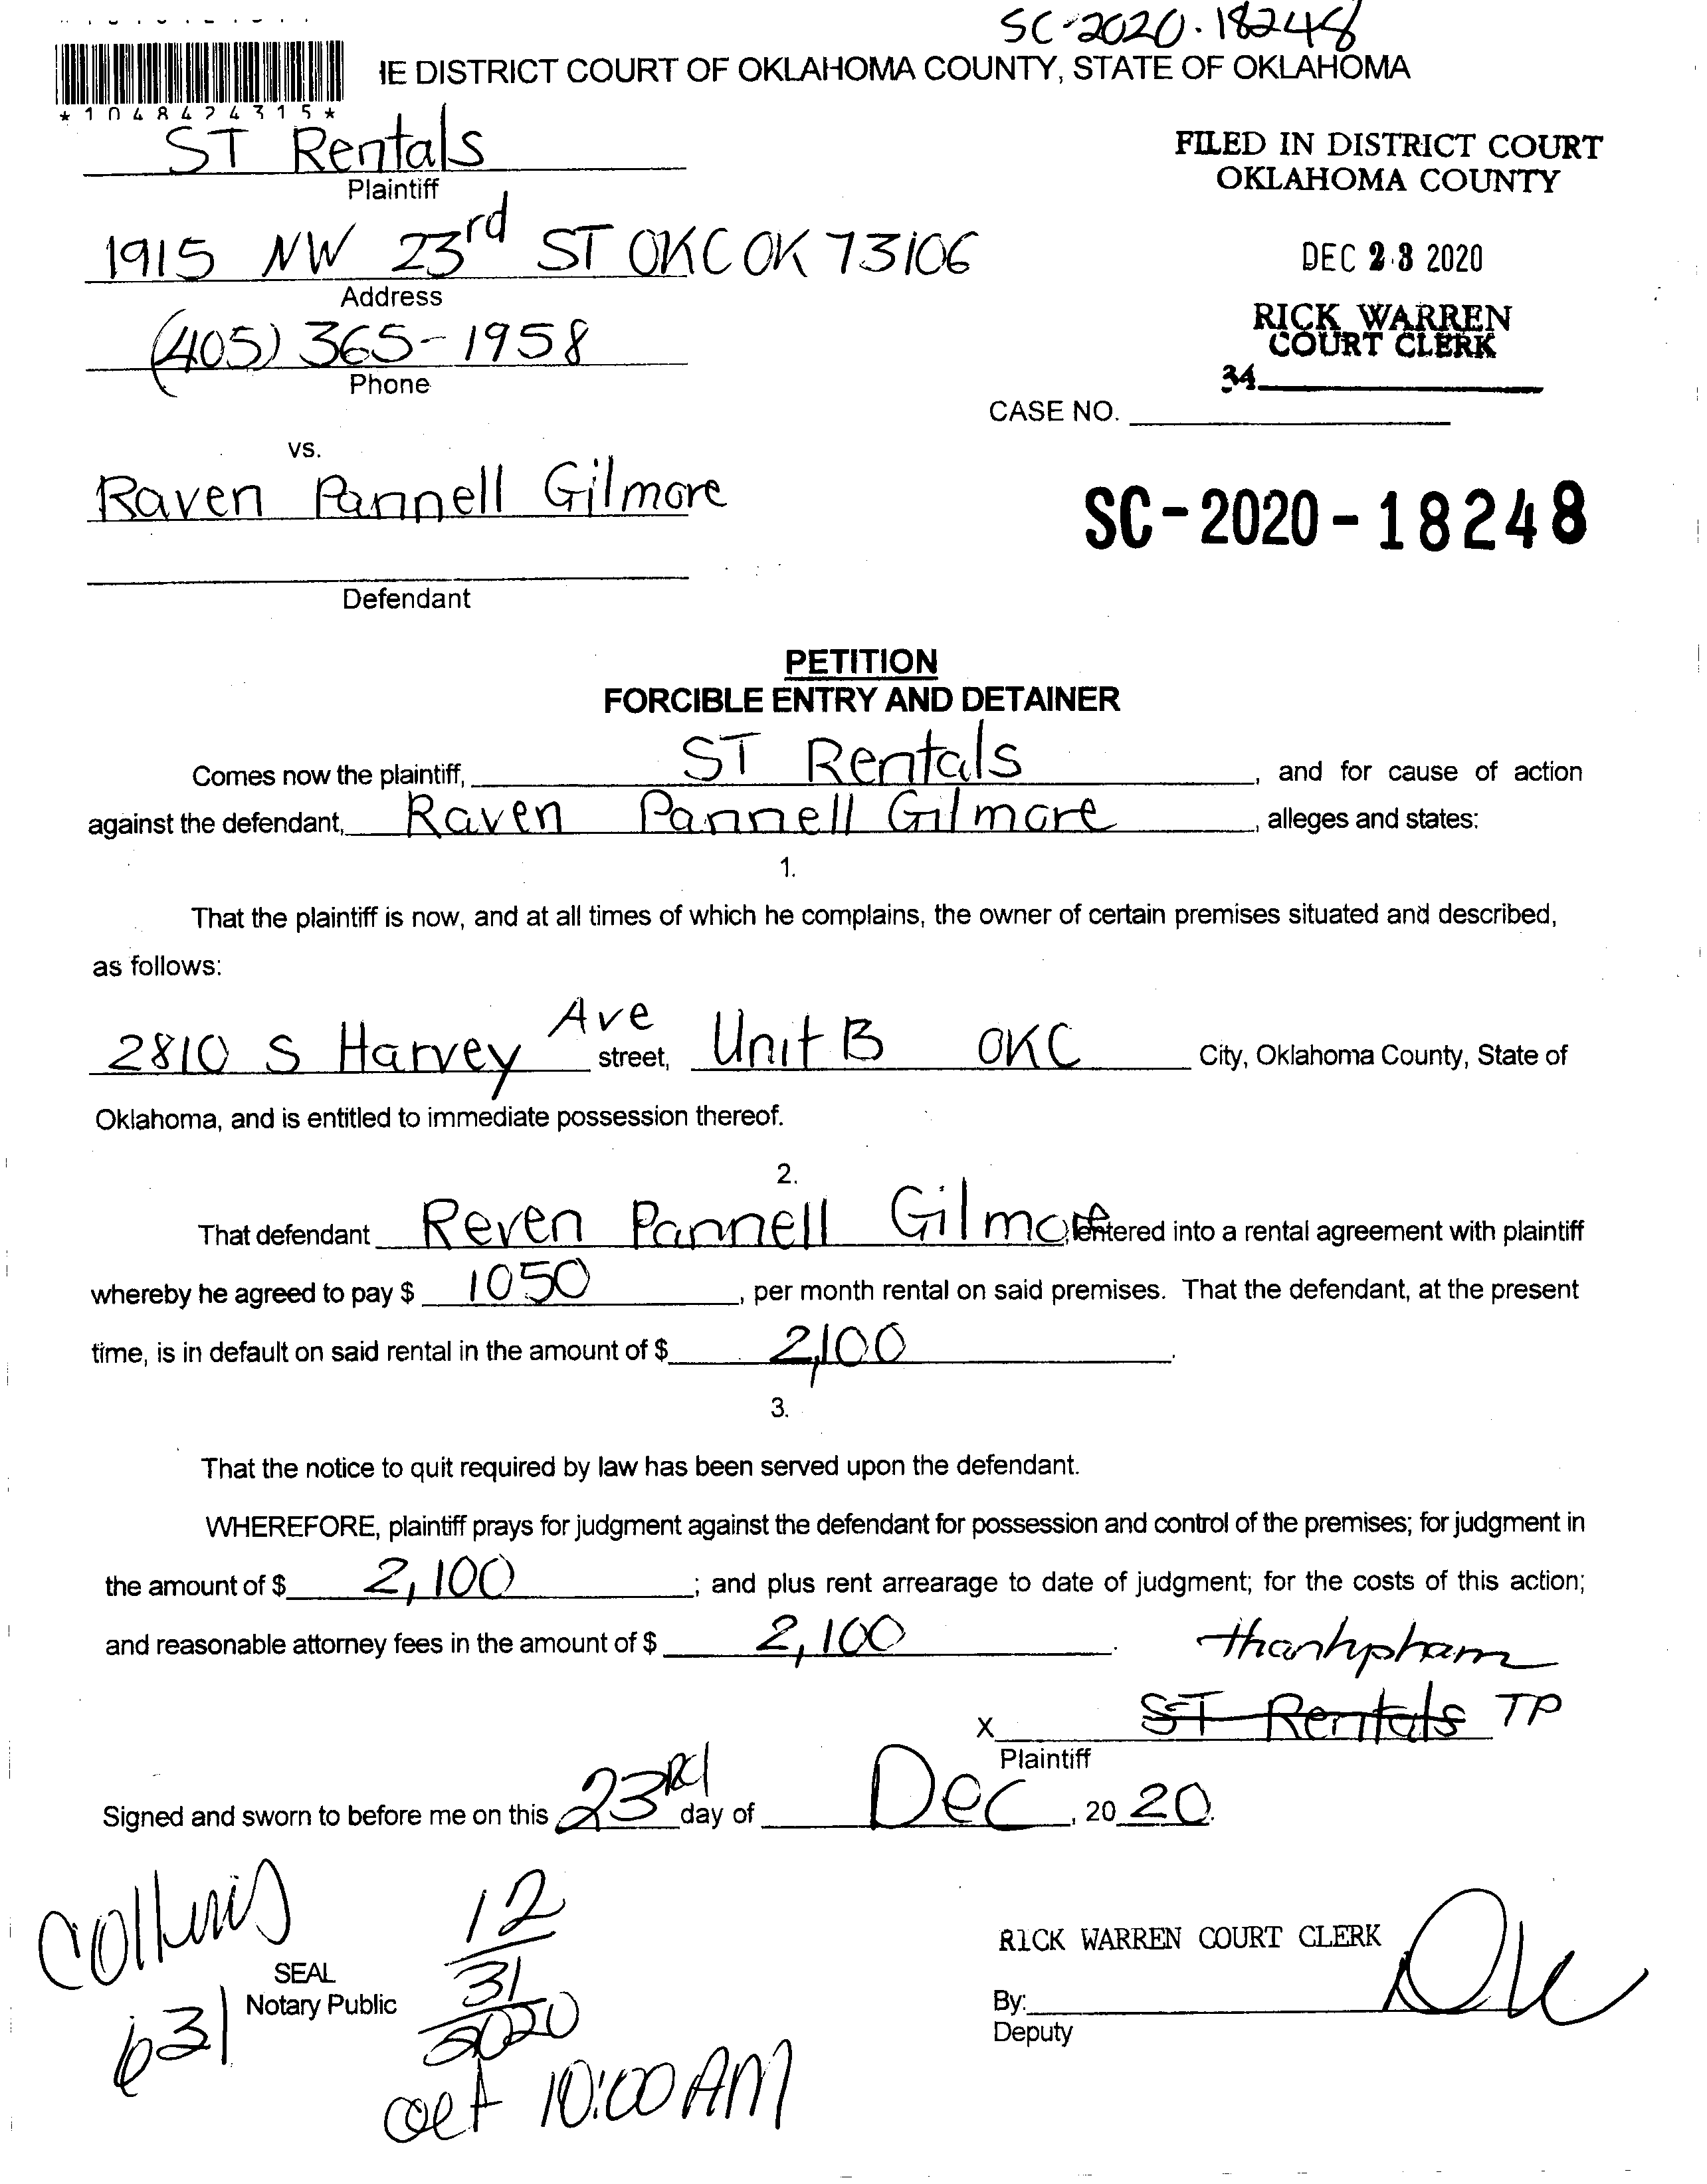 SC-2020-18248
IE DISTRICT COURT OF OKLAHOMA COUNTY, STATE OF OKLAHOMA
*1048424315*
ST Rentals
Plaintiff
FILED IN DISTRICT COURT
OKLAHOMA COUNTY
1915 NW 23rd ST OKC OK 73106
Address
DEC 23 2020
(405) 365-1958
Phone
RICK WARREN
COURT CLERK
34
CASE NO.
vs.
Raven Pannell Gilmore
SC-2020-18248
Defendant
PETITION
FORCIBLE ENTRY AND DETAINER
Comes now the plaintiff, ST Rentals, and for cause of action
against the defendant, Raven Pannell Gilmore, alleges and states:
1.
That the plaintiff is now, and at all times of which he complains, the owner of certain premises situated and described,
as follows:
2810 S Harvey Ave street, Unit B OKC City, Oklahoma County, State of
Oklahoma, and is entitled to immediate possession thereof.
2.
That defendant Reven Pannell Gilmore, entered into a rental agreement with plaintiff
whereby he agreed to pay $ 1050, per month rental on said premises. That the defendant, at the present
time, is in default on said rental in the amount of $ 2,100.
3.
That the notice to quit required by law has been served upon the defendant.
WHEREFORE, plaintiff prays for judgment against the defendant for possession and control of the premises; for judgment in
the amount of $ 2,100; and plus rent arrearage to date of judgment; for the costs of this action;
and reasonable attorney fees in the amount of $ 2,100.
thanhpham
X ST Rentals TP
Plaintiff
Signed and sworn to before me on this 23rd day of Dec, 20 20.
Collins
631
SEAL
Notary Public
12
31
2020
at 10:00 AM
RICK WARREN COURT CLERK
By:
Deputy